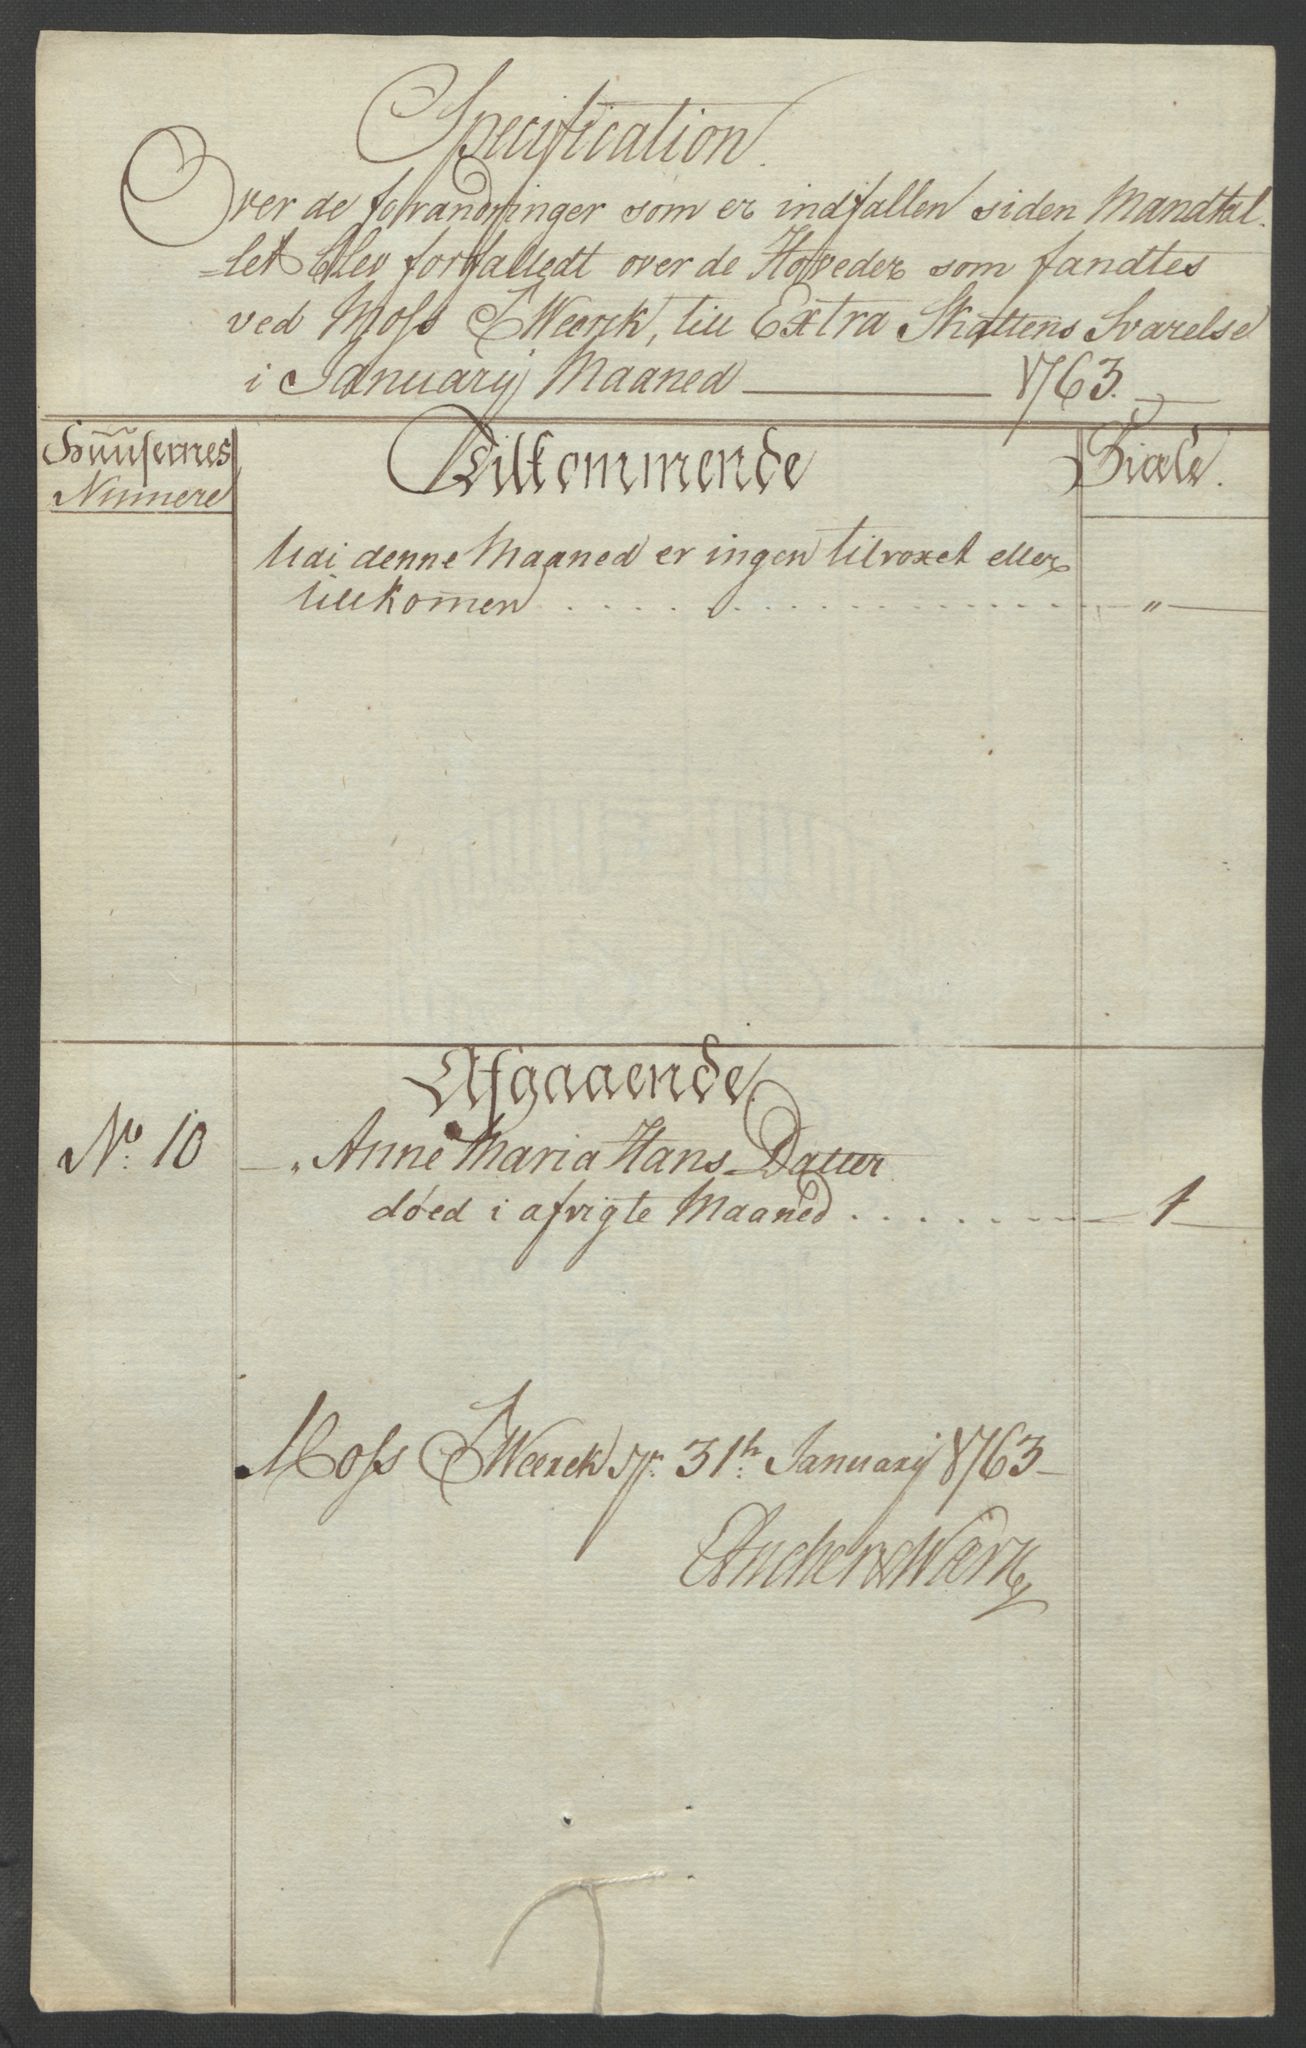 Specification
Over de forandringer som er indfallen siden Mandtal-
let blev forfattedt over de Hoveder som fandtes
ved Moss J Weerck, till Extra Skattens Svarelse
i Januarij Maaned 1763.
Huusernes Tilkommende Siæle.
Numere
Udi denne Maaned er ingen tilvoxet eller
tillkomen . . . . . . . . . . . "
Afgaaende
No. 10 " Anne Maria Hans Datter
döed i afvigte Maaned . . . . . . . 1
Moss J Weerck 31te Januarij 1763
Ancher & Wærn